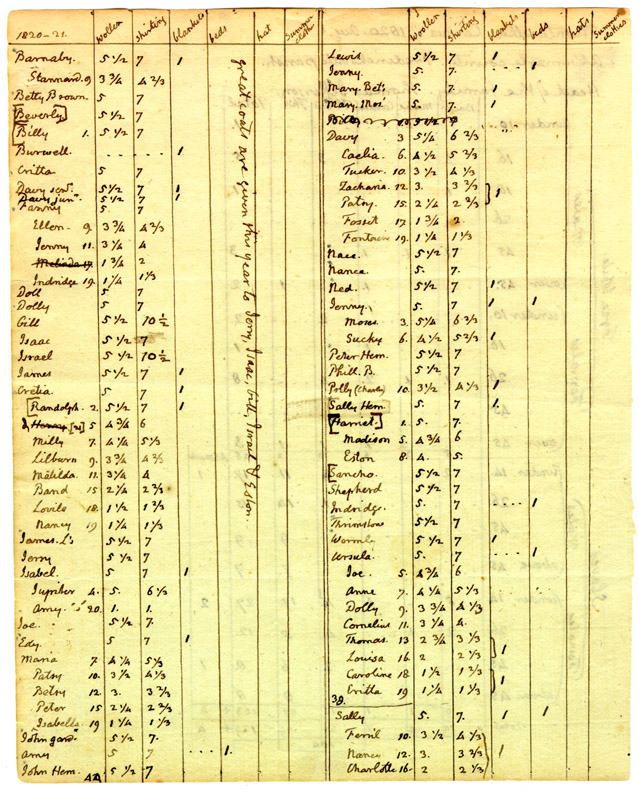 1820-21. wollen shirting blankets beds hat Summer cloth
Barnaby. 5½ 7 1
Stannard. 9 3¾ 4⅔
Betty Brown 5 7
[Beverly] 5½ 7
[Billy 1. 5½ 7
Burwell 1
Critta 5 7
Davy senr. 5½ 7 1
Davy junr. 5½ 7 1
Fanny 5. 7
Ellen 9. 3¾ 4⅔
Jenny 11. 3¾ 4
Melinda 17. 1¾ 2
Indridge 19. 1¼ 1⅓
Doll 5 7
Dolly 5 7
Gill 5½ 10½
Isaac 5½ 7
Israel 5½ 10½
James 5½ 7 1
Cretia 5 7 1
[Randolph. 2. 5½ 7 1
Henry 5 4¾ 6
Milly 7. 4¼ 5⅓
Lilburn 9. 3¾ 4⅔
Matilda. 11. 3¾ 4
Band 15 2¼ 2⅔
Lovilo 18. 1½ 1⅔
Nancy 19 1¼ 1⅓
James. L's 5½ 7.
Jerry 5½ 7
Isabel. 5 7 1
Jupiter 4. 5. 6⅓
Amy. "s" 20. 1. 1.
Joe. 5½ 7.
Edy. 5 7 1
Maria 7. 4¼ 5⅓
Patsy 10. 3½ 4⅓
Betsy 12. 3. 3⅔
Peter 15 2¼ 2⅔
Isabella 19 1¼ 1⅓
John gardr. 5½ 7.
Amy 5 7 1.
John Hem. 5½ 7
42
great coats are given this year to Jerry, Isaac, Gill, Israel & Eston.
wollen shirting blankets beds hats Summer clothes
Lewis 5½ 7 1
Jenny. 5. 7. 1
Mary. Bet's 5. 7. 1
Mary. Mos' 5. 7. 1
Billy 5½ 7
Davy 3 5¼ 6⅔
Caelia 6. 4½ 5⅔
Tucker. 10. 3½ 4⅓
Zacharia 12. 3. 3⅔
Patsy. 15 2¼ 2⅔ 1
Fosset 17. 1¾ 2.
Fontaine 19. 1¼ 1⅓
Nace. 5½ 7
Nance. 5. 7.
Ned. 5½ 7 1
Jenny. 5. 7 1 1
Moses. 3. 5¼ 6⅔
Suckey 6. 4½ 5⅔ 1
Peter Hem. 5½ 7
Phill. B. 5½ 7
Polly (Charles) 10. 3½ 4⅓ 1
Sally Hem. 5. 7 1.
[Harriet.] 1. 5. 7.
Madison 5. 4¾ 6
Eston 8. 4. 5.
[Sancho. 5½ 7
Shepherd 5½ 7
Indridge. 5. 7 1
Thrimston 5½ 7
Wormly 5½ 7 1
Ursula. 5. 7 1
Joe. 5. 4¾ 6
Anne 7. 4¼ 5⅓
Dolly 9. 3¾ 4⅓
Cornelius 11. 3¾ 4.
Thomas. 13 2¾ 3⅓
Louisa 16. 2 2⅓ 1
Caroline 18 1½ 1⅔
Critta 19 1¼ 1⅓ 1
39.
Sally 5. 7. 1 1
Ferril 10. 3½ 4⅓
Nancy 12. 3. 3⅔ 1
Charlotte 16. 2 2⅓